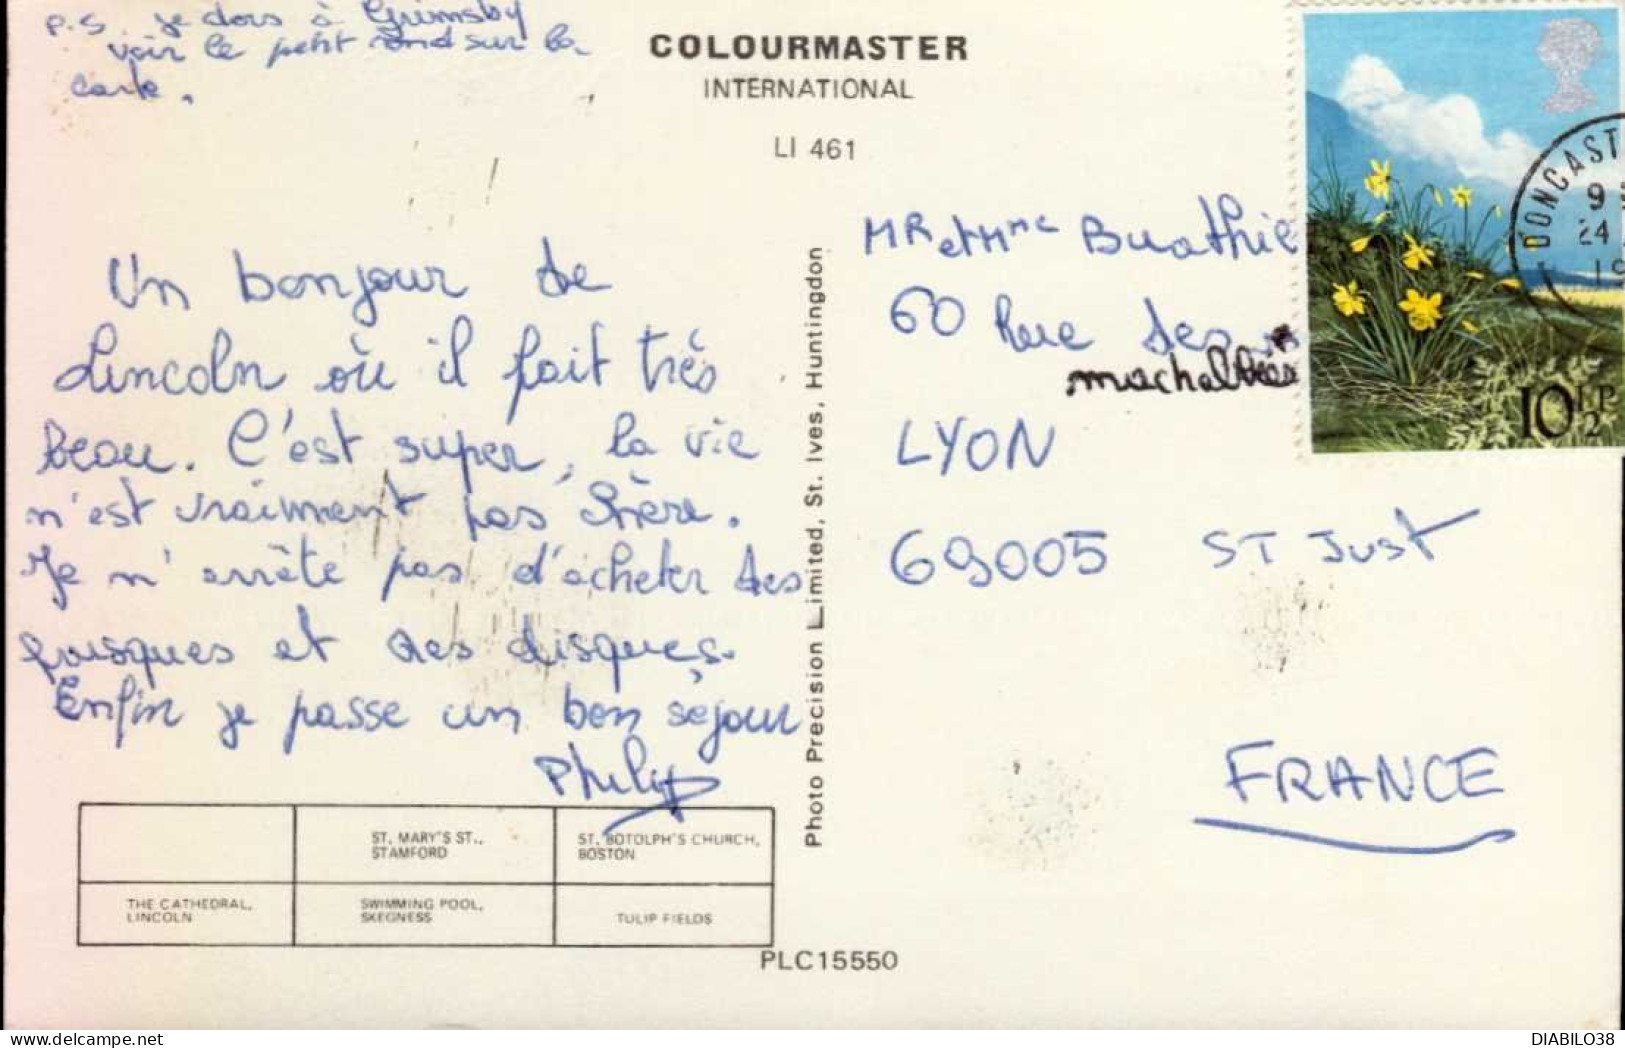 P.S. je dors à Grimsby
voir le petit rond sur la
carte.
COLOURMASTER
INTERNATIONAL
LI 461
Un bonjour de
Lincoln où il fait très
beau. C'est super, la vie
n'est vraiment pas chère.
Je n'arrête pas d'acheter des
frusques et des disques.
Enfin je passe un bon séjour
Philip
Photo Precision Limited, St. Ives, Huntingdon
MR et Mme Buathie
60 Rue des
LYON
69005 ST JUST
FRANCE
10½P
DONCAST
9
24
19
ST. MARY'S ST.,
STAMFORD
ST. BOTOLPH'S CHURCH,
BOSTON
THE CATHEDRAL,
LINCOLN
SWIMMING POOL,
SKEGNESS
TULIP FIELDS
PLC15550
DIABILO38